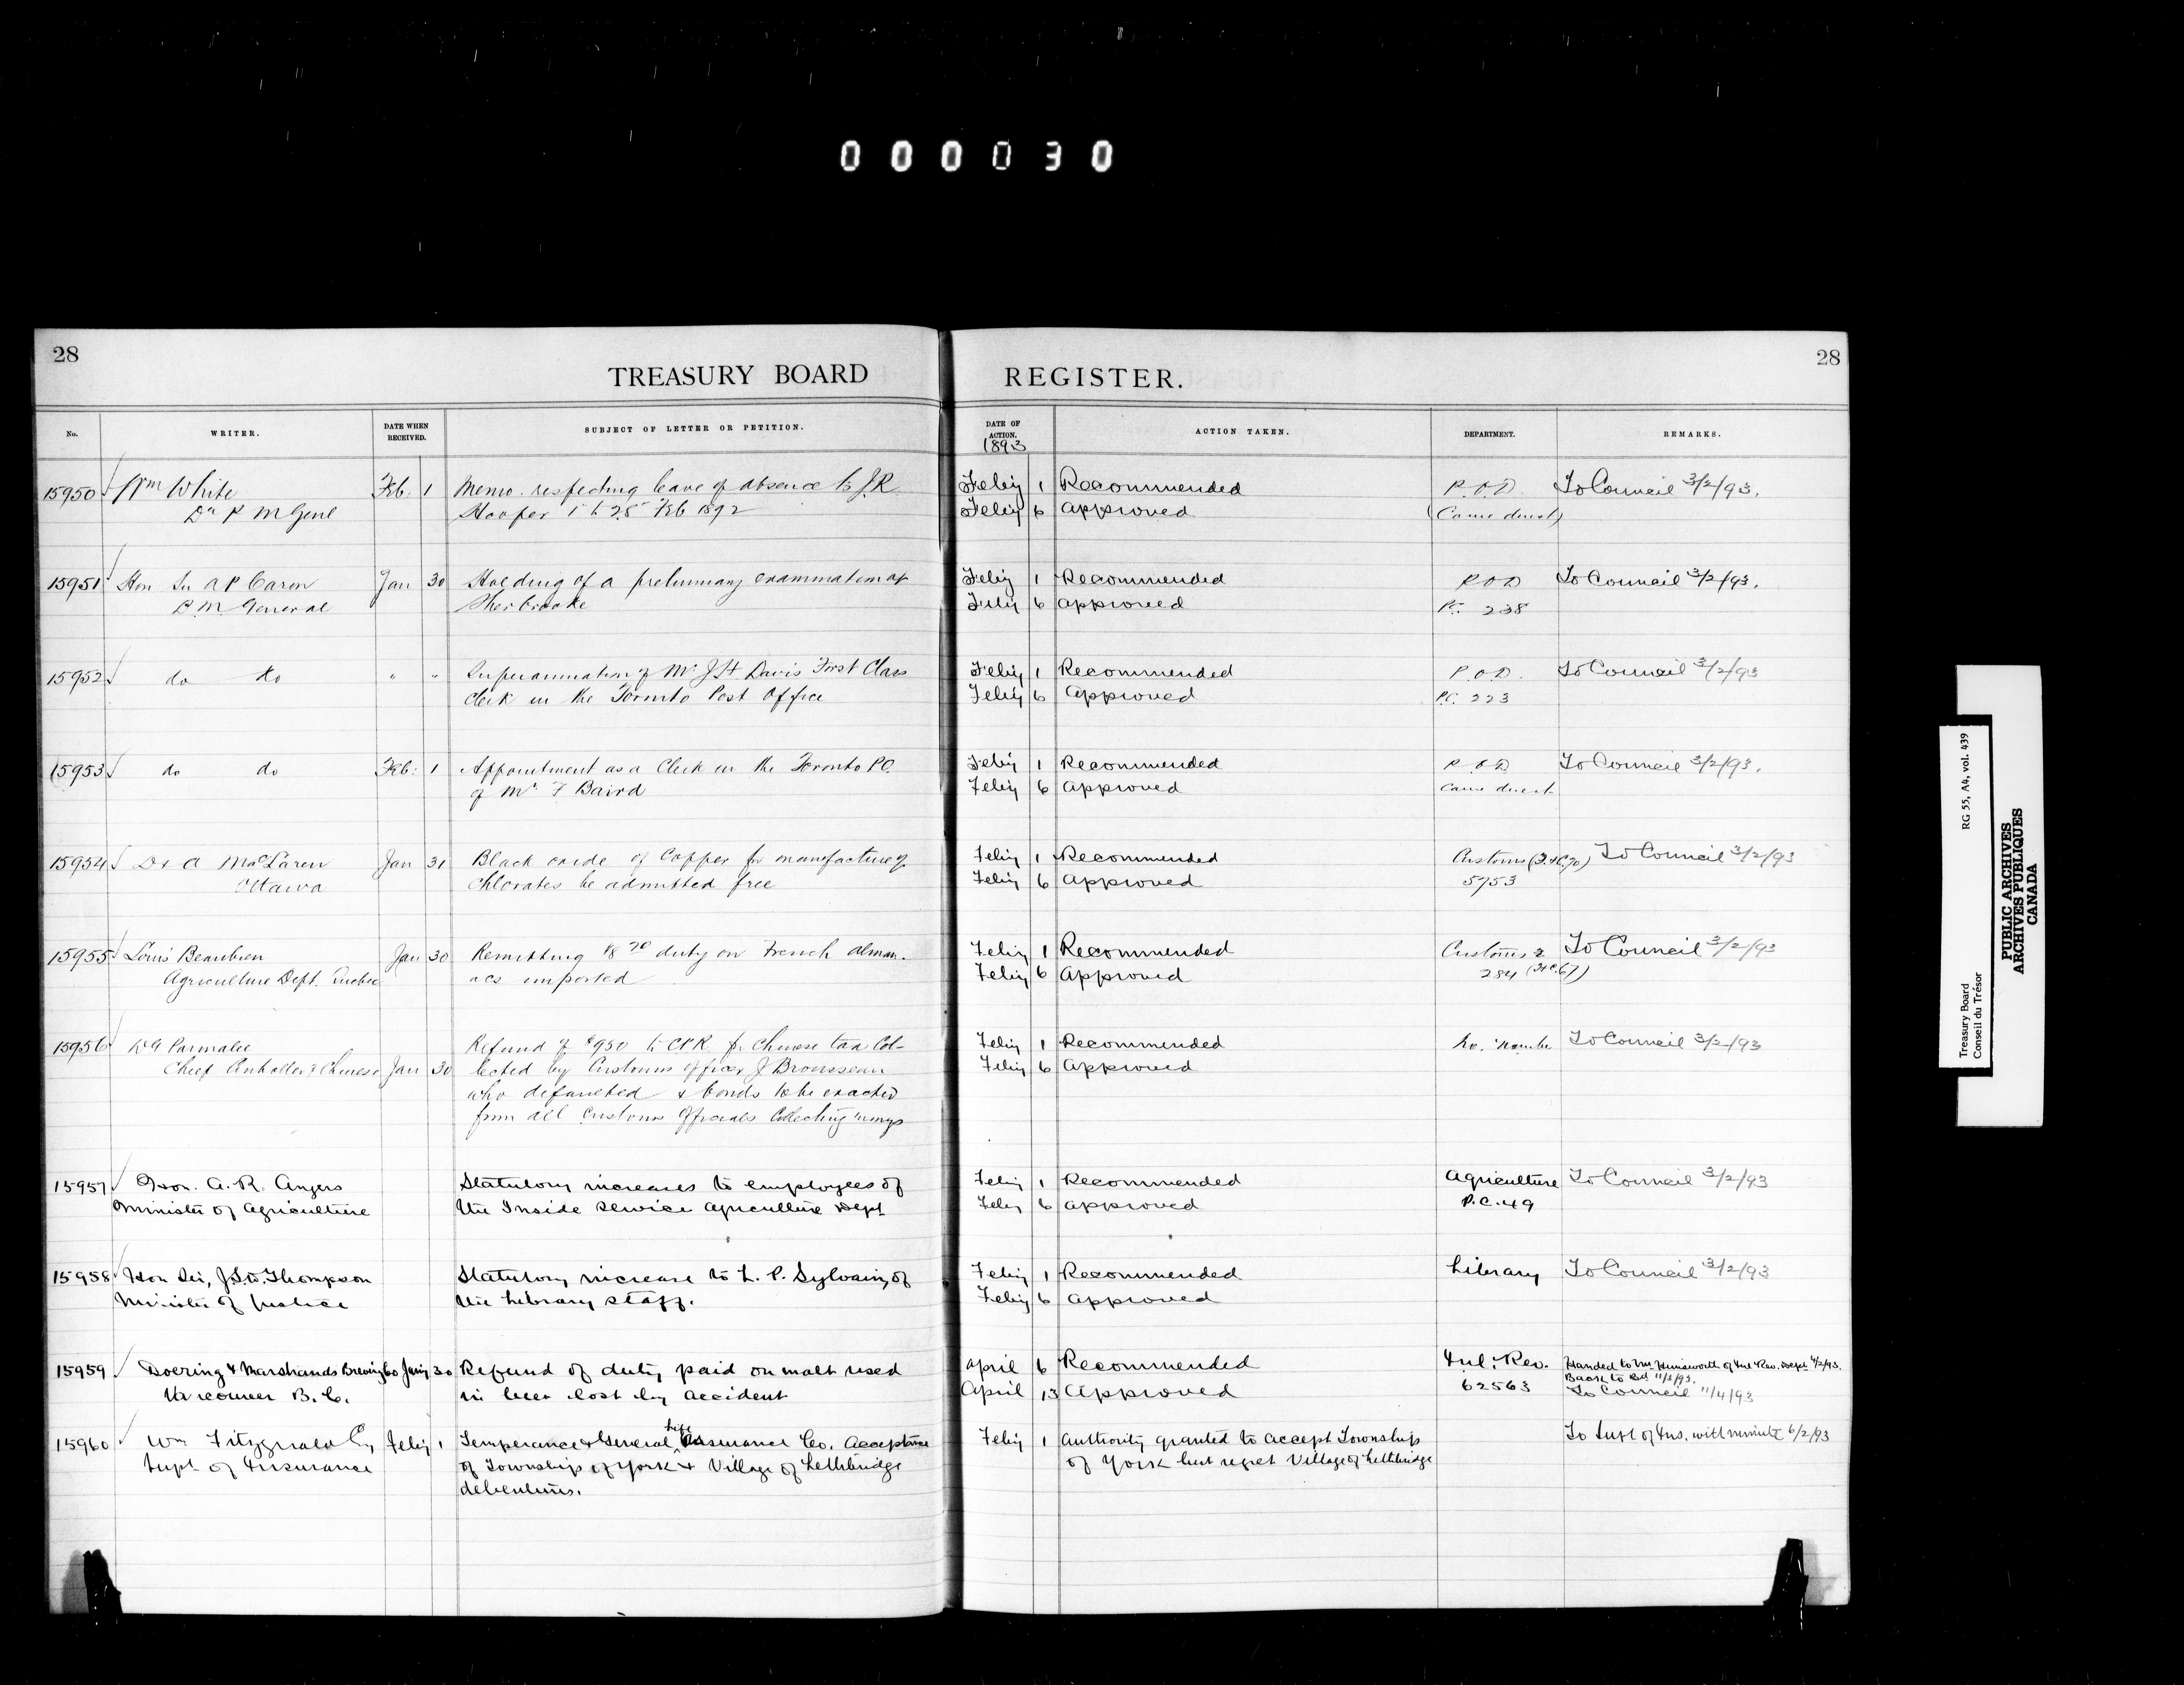 000030
28
TREASURY BOARD REGISTER.
28
No.
WRITER.
DATE WHEN RECEIVED.
SUBJECT OF LETTER OR PETITION.
DATE OF ACTION.
1893
ACTION TAKEN.
DEPARTMENT.
REMARKS.
15950 Wm White Feb. 1 Memo. respecting leave of absence to J.R. Feby 1 Recommended P.O.D. To Council 3/2/93.
Dy P M Genl Hooper 1st to 28th Feb 1892 Feby 6 Approved (Came direct)
15951 Hon Sir A P Caron Jan 30 Holding of a preliminary examination at Feby 1 Recommended P.O.D To Council 3/2/93.
P.M. General Sherbrooke Feby 6 approved P.C. 238
15952 do do " " Superannuation of Mr J H Davis First Class Feby 1 Recommended P.O.D. To Council 3/2/93
Clerk in the Toronto Post Office Feby 6 Approved P.C. 223
15953 do do Feb: 1 Appointment as a Clerk in the Toronto P.O. Feby 1 Recommended P.O.D. To Council 3/2/93.
of Mr F Baird Feby 6 Approved Came direct
15954 Dr A MacLaren Jan 31 Black oxide of Copper for manufacture of Feby 1 Recommended Customs To Council 3/2/93
Ottawa chlorates be admitted free Feby 6 Approved 5753
15955 Louis Beaubien Jan 30 Remitting $8 70 duty on French alman- Feby 1 Recommended Customs 2 To Council 3/2/93
Agriculture Dept. Quebec acs imported Feby 6 Approved 284
15956 W G Parmalee Refund of $950 to CPR for Chinese tax Col- Feby 1 Recommended No. Number To Council 3/2/93
Chief Controller of Chinese Jan 30 lected by Customs Officer J Brousseau Feby 6 Approved
who defaulted & bonds to be exacted
from all Customs Officials Collecting
15957 Hon. A. R. Angers Statutory increases to employees of Feby 1 Recommended Agriculture To Council 3/2/93
Minister of Agriculture the Inside Service Agriculture Dept Feby 6 approved P.C. 49
15958 Hon Sir, J.S.D. Thompson Statutory increase to L. P. Sylvain, of Feby 1 Recommended Library To Council 3/2/93
Minister of Justice the Library staff. Feby 6 approved
15959 Doering & Marstrands Brewing Co Jany 30 Refund of duty paid on malt used April 6 Recommended Inl: Rev. Handed to Mr Himsworth of Inl Rev. Dept 4/2/93.
Vancouver B.C. in beer lost by accident April 13 Approved 62563 Back to
To Council 11/4/93
15960 Wm Fitzgerald Esq Feby 1 Temperance & General Life Assurance Co. Acceptance Feby 1 Authority granted to accept Township To Supt of Ins. with minute 6/2/93
Supt of Insurance of Township of York & Village of Lethbridge of York but reject Village of Lethbridge
debentures.
Treasury Board RG 55, A4, vol. 439
Conseil du Trésor
PUBLIC ARCHIVES
ARCHIVES PUBLIQUES
CANADA